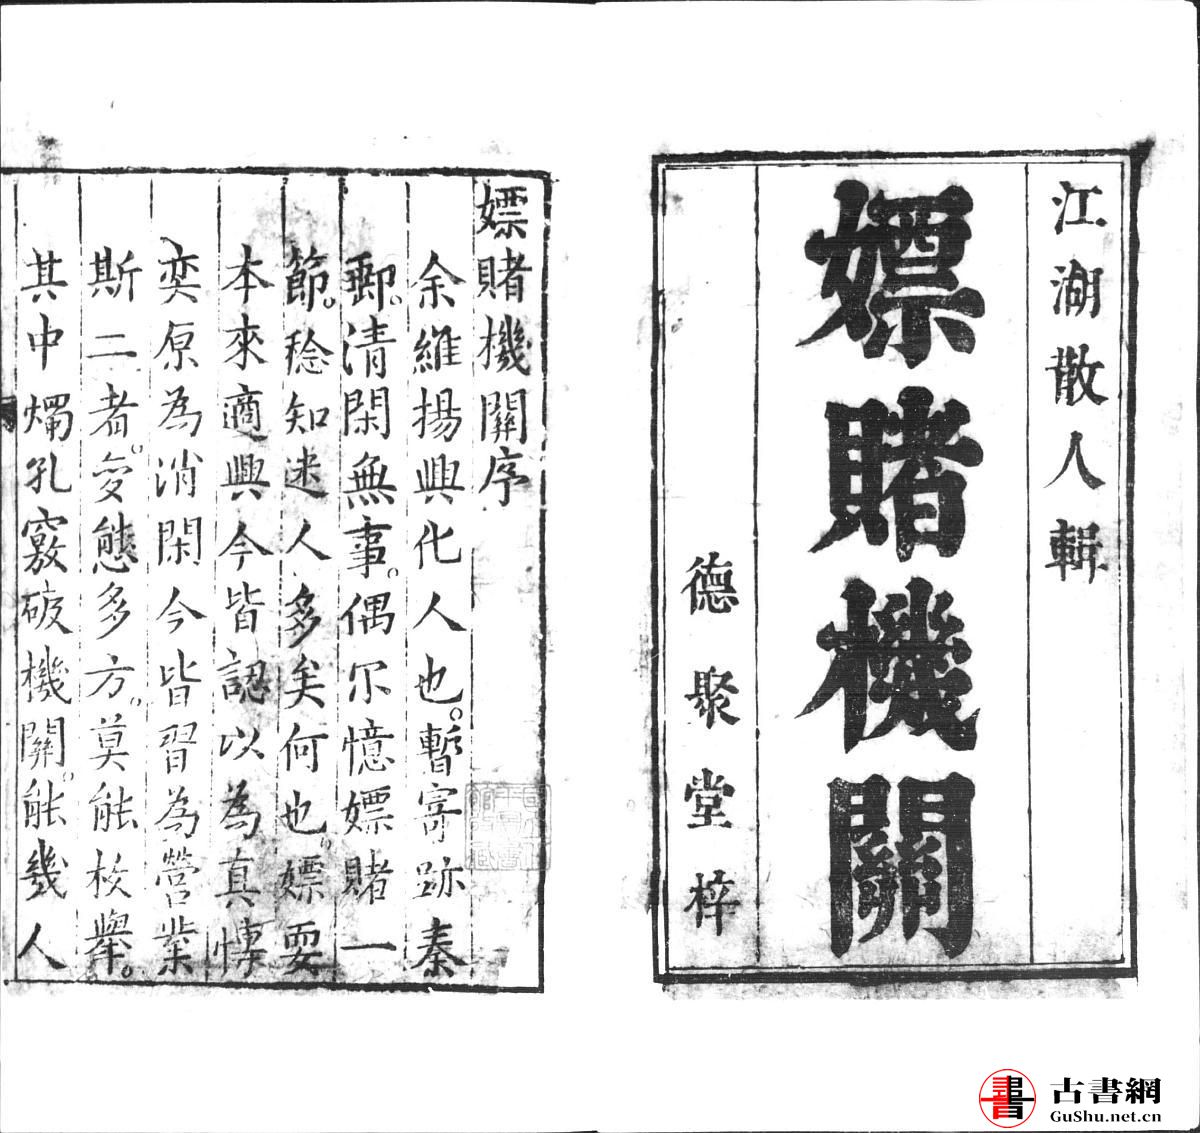 江湖散人輯
嫖賭機關
德聚堂梓
嫖賭機關序
余維揚興化人也。暫寄跡秦
郵。清閑無事。偶尔憶嫖賭一
節。稔知迷人多矣何也。嫖耍
本來適興今皆認以為真愽
奕原為消閑今皆習為營業
斯二者。变態多方。莫能枚舉。
其中燭孔竅破機關。能幾人
古書網
GuShu.net.cn